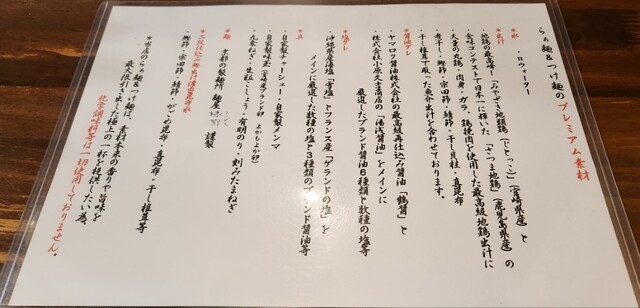 らぁ麺＆つけ麺のプレミアム素材
＊水
・πウォーター
＊出汁
・地鶏の最高峰！「みやざき地頭鶏（じとっこ）」（宮崎県産）と
食味コンテストで日本一に輝いた「さつま地鶏」（鹿児島県産）の
大量の丸鶏・肉身・ガラ、鶏挽肉を使用した最高級地鶏出汁に
煮干し・鰹節・宗田節・鯖節・干し貝柱・真昆布
干し椎茸で取った魚介出汁を合わせております。
＊醤油ダレ
・ヤマロク醤油株式会社の最高級再仕込み醤油「鶴醤」と
株式会社小原久吉商店の「湯浅醤油」をメインに
厳選したブランド醤油6種類と数種の塩等
＊塩ダレ
・沖縄県産海塩「寿塩」とフランス産「ゲランドの塩」を
メインに厳選した数種の塩と3種類のブランド醤油等
＊具
・自家製チャーシュー・自家製メンマ
・自家製味玉（宮崎産ブランド卵
・九条ねぎ・岩社こしょう・有明のり・刻みたまねぎ
＊麺
・京都の製麺所 麺屋
謹製
＊三段仕込み鰹出汁濃密昆布水
・鰹節・宗田節・鯖節・がごめ昆布・真昆布・干し椎茸等
＊当店のらぁ麺＆つけ麺は、素材本来の香りや旨味を
最大限引き出した極上の一杯を提供したい為、
化学調味料等は一切使用しておりません。